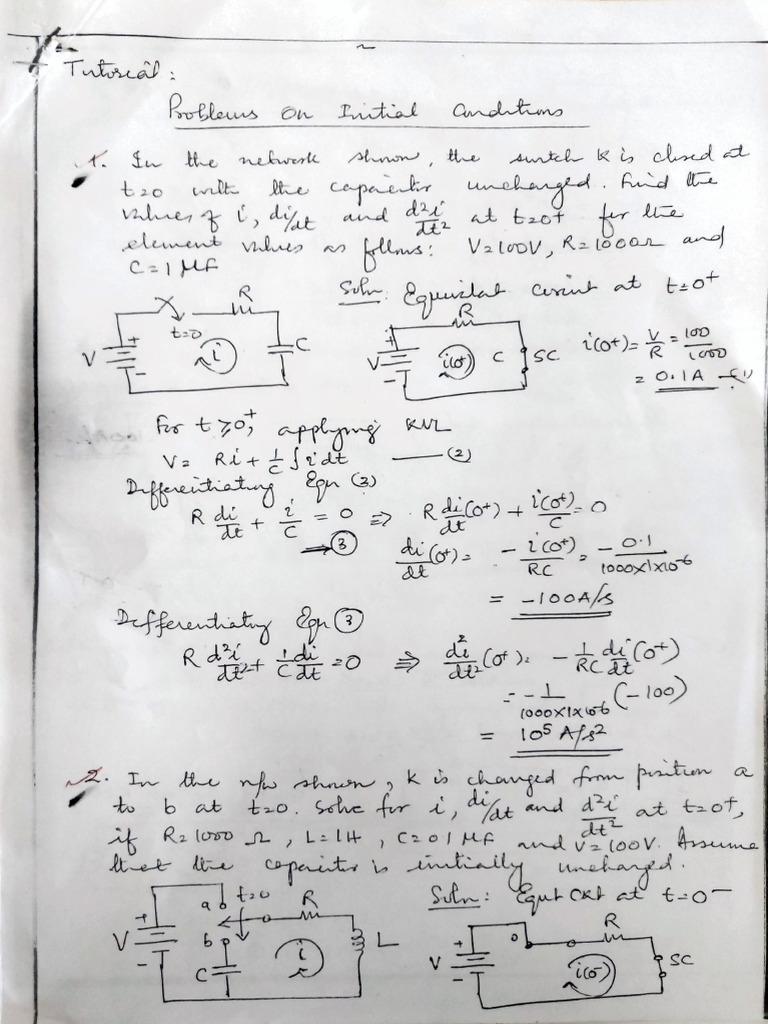 Tutorial :
Problems on Initial Conditions
1. In the network shown, the switch K is closed at
t=0 with the capacitor uncharged. Find the
values of i, di/dt and d²i/dt² at t=0+ for the
element values as follows: V=100V, R=1000Ω and
C=1 μF
Soln: Equivalent circuit at t=0⁺
R
t=0
V
+
-
i
C
R
V
+
-
i(0⁺)
C
SC
i(0⁺) = V/R = 100/1000
= 0.1A —(1)
For t ≥ 0⁺, applying KVL
V = Ri + 1/C ∫ i dt ——— (2)
Differentiating Eqn (2)
R di/dt + i/C = 0 ⇒ R di/dt (0⁺) + i(0⁺)/C = 0
→ (3)
di/dt (0⁺) = - i(0⁺)/RC = - 0.1/1000×1×10⁻⁶
= -100A/s
Differentiating Eqn (3)
R d²i/dt² + 1/C di/dt = 0 ⇒ d²i/dt² (0⁺) = - 1/RC di/dt (0⁺)
= - 1/1000×1×10⁻⁶ (-100)
= 10⁵ A/s²
2. In the n/w shown, K is changed from position a
to b at t=0. Solve for i, di/dt and d²i/dt² at t=0+,
if R=1000 Ω, L=1H, C=0.1 μF and V=100V. Assume
that the capacitor is initially uncharged.
Soln: Equt Ckt at t=0⁻
a
t=0
R
V
+
-
b
C
i
L
R
V
+
-
i(0⁻)
SC